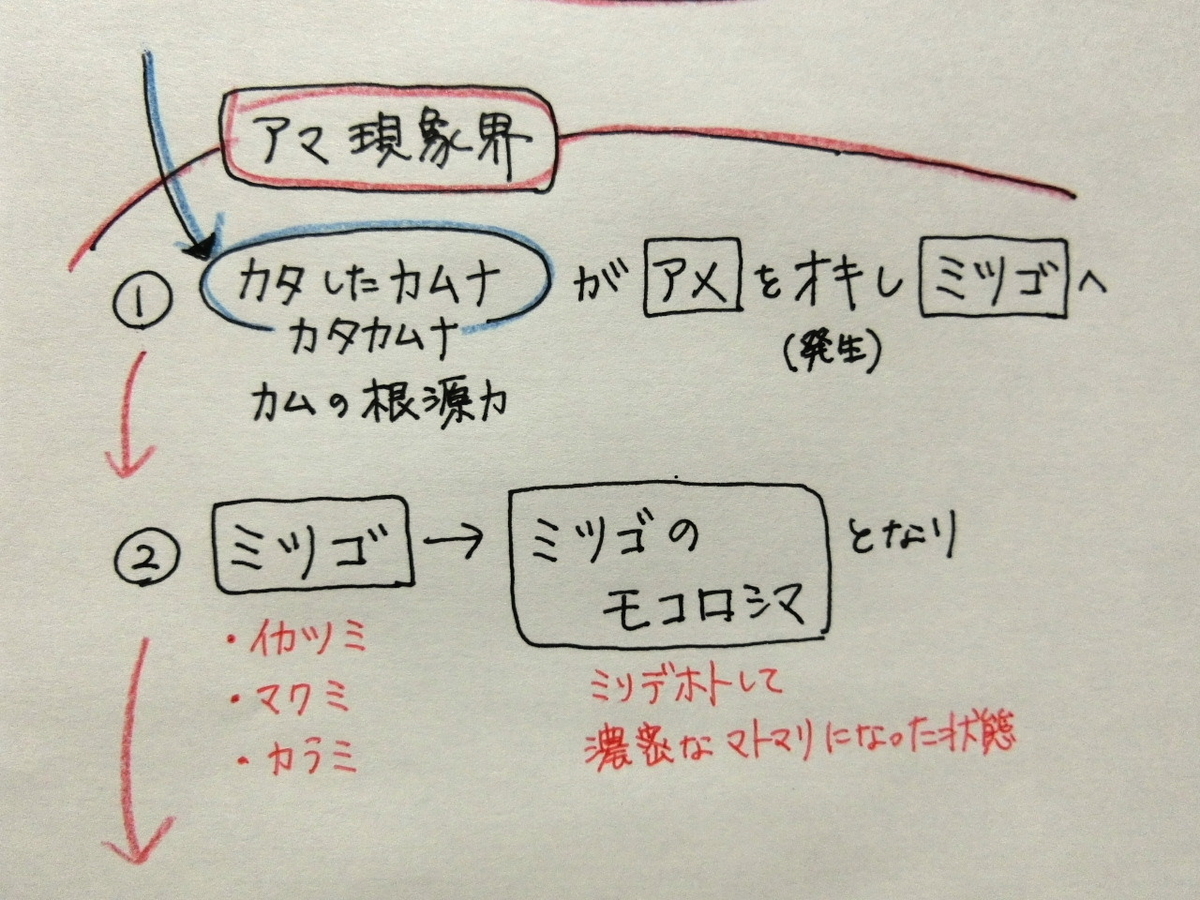 アマ現象界
① カタしたカムナ が アメ をオキし ミツゴ へ
カタカムナ
(発生)
カムの根源力
② ミツゴ → ミツゴの となり
モコロシマ
・イカツミ
・マクミ
・カラミ
ミツデホトして
濃密なマトマリになった状態